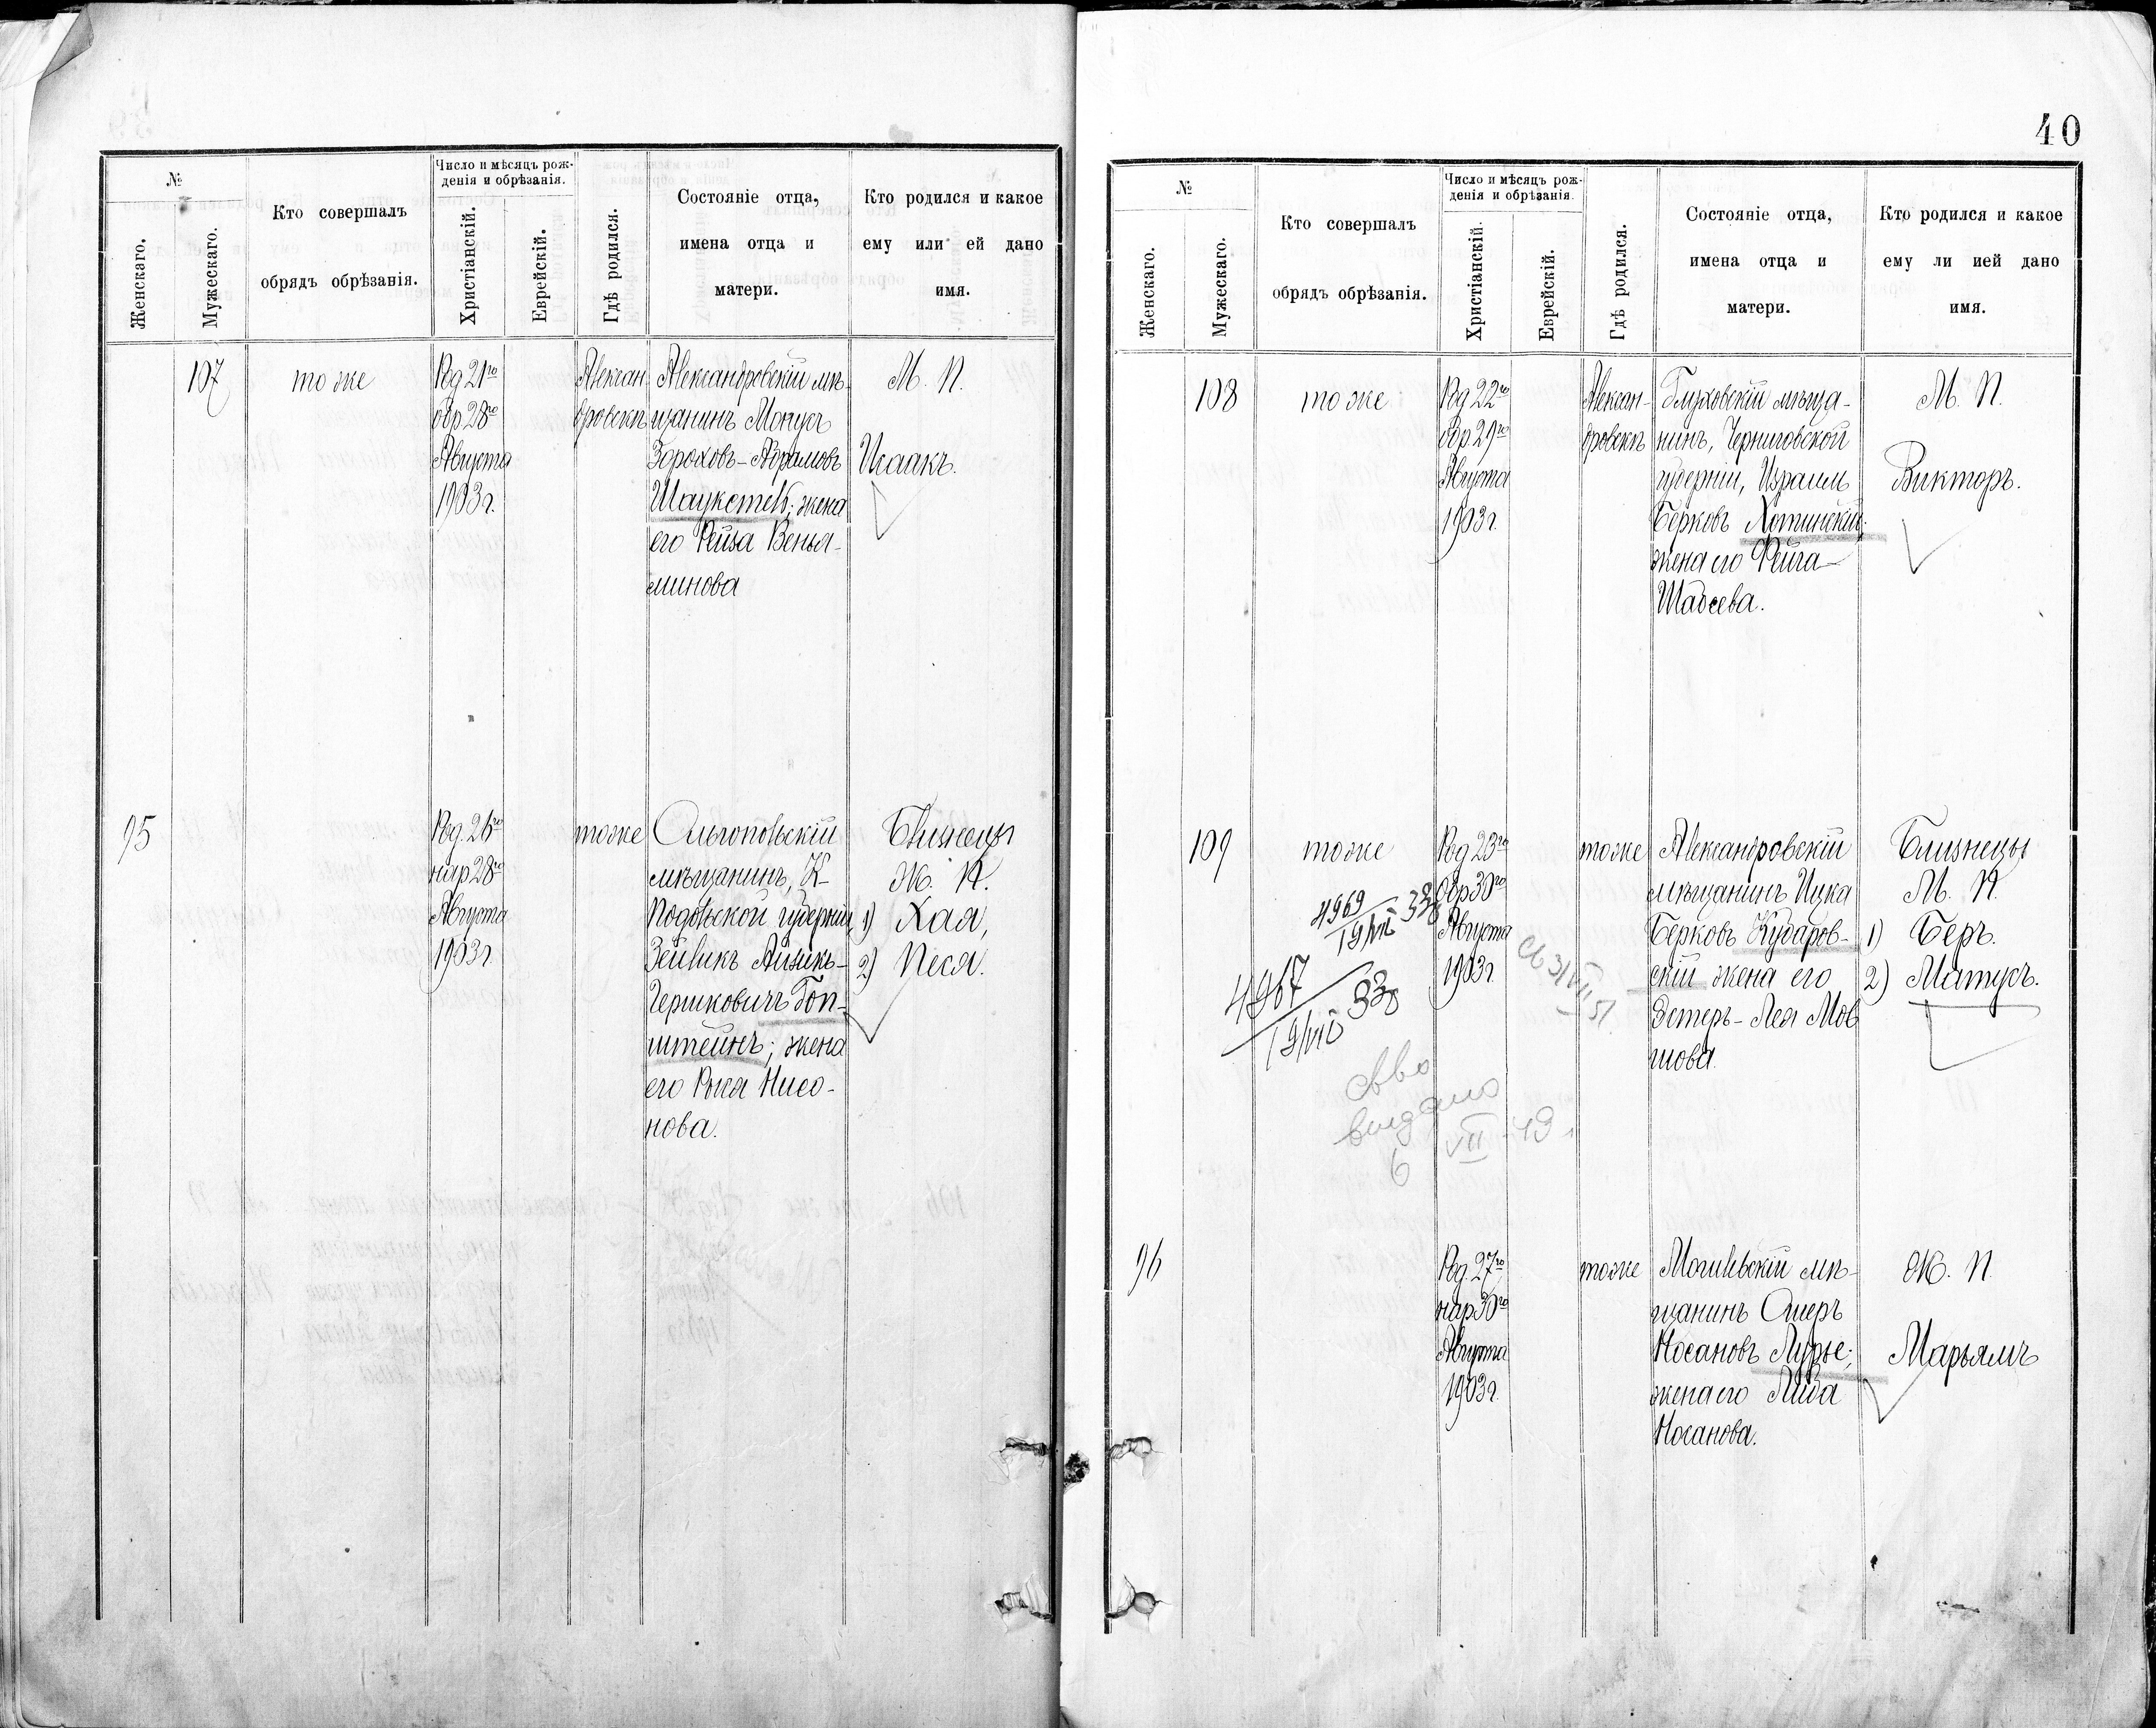 40
№
Женскаго.
Мужескаго.
Кто совершалъ
обрядъ обрѣзанія.
Число и мѣсяцъ рож-
денія и обрѣзанія.
Христіанскій.
Еврейскій.
Гдѣ родился.
Состояніе отца,
имена отца и
матери.
Кто родился и какое
ему или ей дано
имя.
107
тоже
Род 21го
обр 28го
Августа
1903г.
Алексан-
дровскъ
Александровскій мѣ-
щанинъ Монусъ
Зороховъ-Абрамовъ
жена
его Рейза Венья-
минова
М. П.
Исаакъ.
95
Род. 26го
нар 28го
Августа
1903г.
тоже
Ольгопольскій
мѣщанинъ, К-
Подольской губерніи,
Зейликъ Айзикъ-
Гершковичъ Гоп-
штейнъ; жена
его Рися Нисо-
нова.
Близнецы
Ж. П.
1) Хая,
2) Песя.
№
Женскаго.
Мужескаго.
Кто совершалъ
обрядъ обрѣзанія.
Число и мѣсяцъ рож-
денія и обрѣзанія.
Христіанскій.
Еврейскій.
Гдѣ родился.
Состояніе отца,
имена отца и
матери.
Кто родился и какое
ему ли ией дано
имя.
108
тоже
Род 22го
обр 29го
Августа
1903г.
Алексан-
дровскъ
Глуховскій мѣща-
нинъ, Черниговской
губерніи, Израиль
Берковъ Хотинскій;
жена его Фейга
Шабсева.
М. П.
Викторъ.
109
тоже
Род 23го
обр 30го
Августа
1903г.
тоже
Александровскій
мѣщанинъ Ицка
Берковъ Кударов-
скій жена его
Эстеръ-Лея Мов
шова.
Близнецы
М. П.
1) Беръ.
2) Матусъ.
4969
19/VII 338
4967
19/VII 338
выдано
6 VII 49
96
Род. 27го
нар 30го
Августа
1903г.
тоже
Могилевскій мѣ-
щанинъ Ошеръ
Носановъ Лурье;
жена его Либа
Носанова.
Ж. П.
Марьямъ